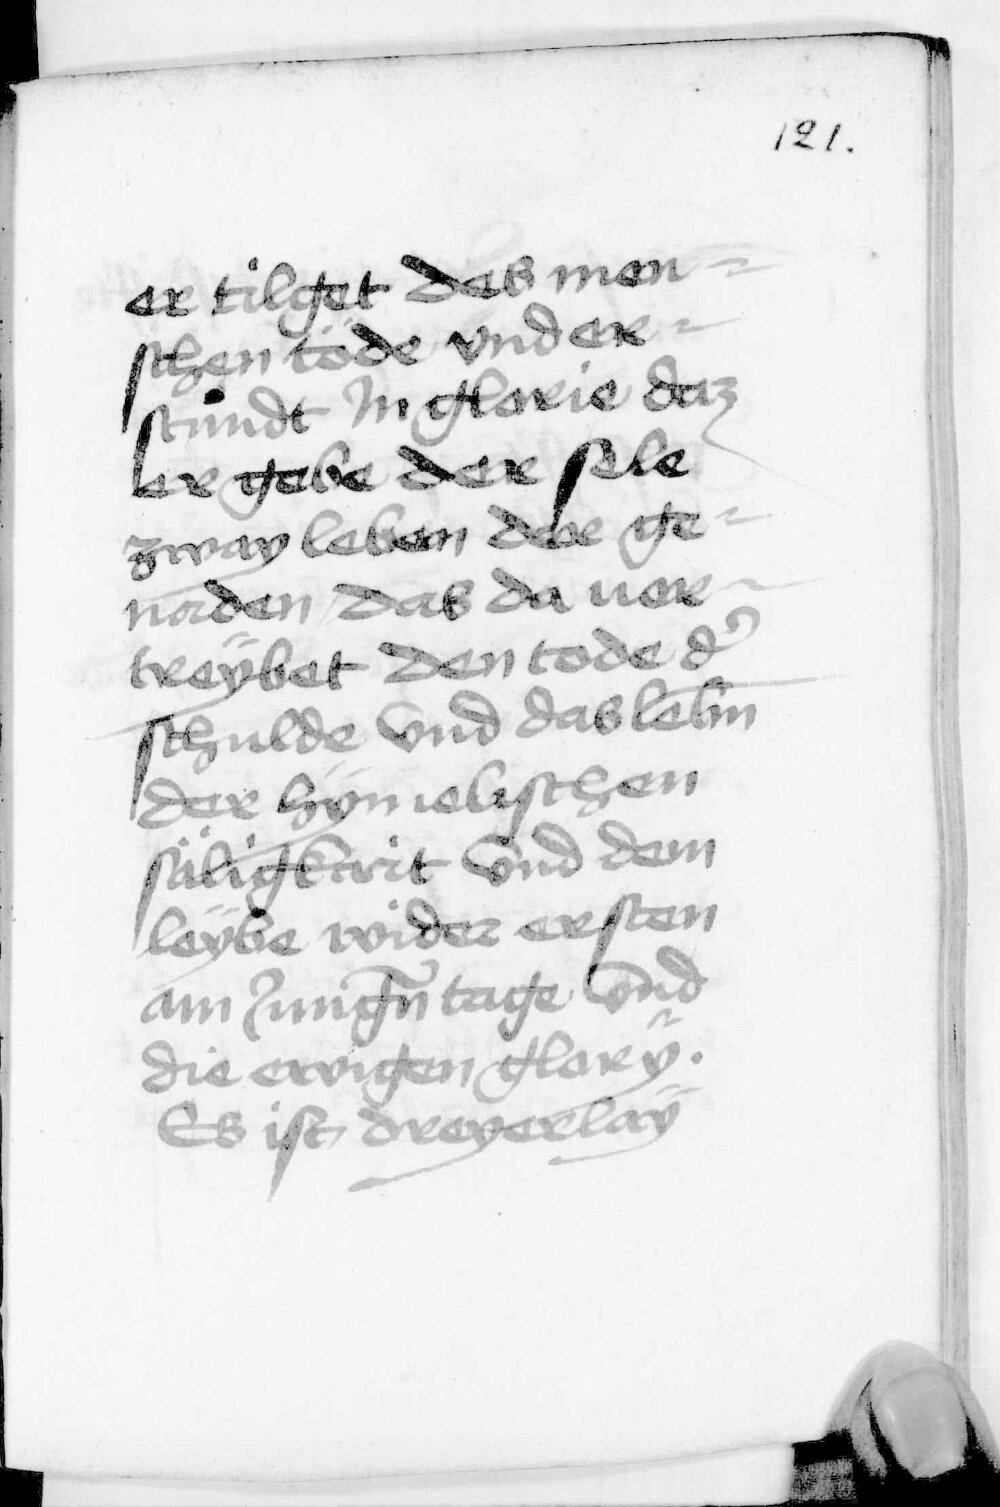 121.
er tilget des men=
schen töde vnd er=
stundt In glorie daz
er gebe der sele
zway leben der ge=
naden das da ver=
treÿbet den tode d'
schulde vnd das lebn̄
der hÿmelischen
säligkeit vnd dem
leÿbe wider ersten
am Jungn̄ tage vnd
die ewigen glorÿ.
Es ist dreyerlaÿ